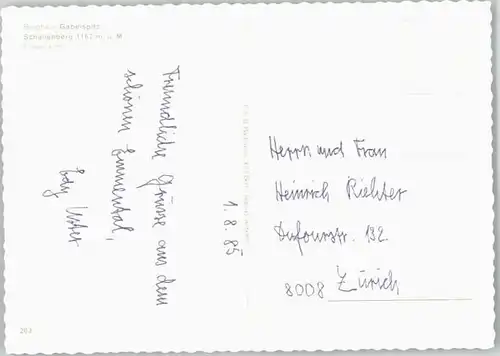 Gabelspitz
Schallenberg 1167 m. ü. M.
Freundliche Grüsse aus dem
schönen Emmental,
Edy Uster
1. 8. 85
Herrn und Frau
Heinrich Richter
Dufourstr. 132.
8008 Zürich
263